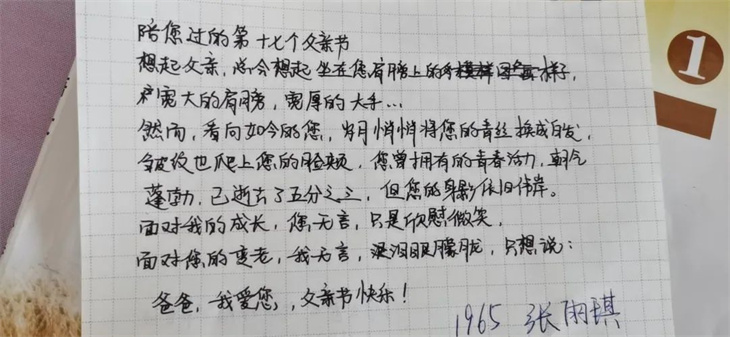 陪您过的第十七个父亲节
想起父亲，总会想起坐在您肩膀上的样子，
宽大的肩膀，宽厚的大手...
然而，看向如今的您，岁月悄悄将您的青丝换成白发，
皱纹也爬上您的脸颊，您曾拥有的青春活力，朝气
蓬勃，已逝去了五分之三，但您的身影依旧伟岸。
面对我的成长，您无言，只是欣慰微笑，
面对您的变老，我无言，泪眼朦胧，只想说：
爸爸，我爱您，父亲节快乐！
1965 张雨琪
1